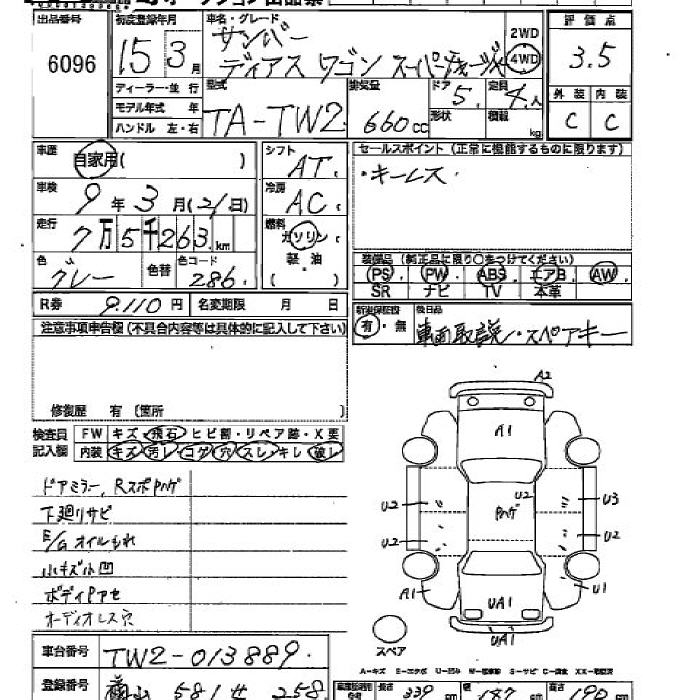 出品番号 初度登録年月 車名・グレード 評価点
6096 15年3月 サンバー 2WD 3.5
ディアス ワゴン スーパーチャージャ 4WD
ディーラー・並行 型式 排気量 ドア 定員 外装 内装
モデル年式 年 TA-TW2 660cc 5. 4人 C C
ハンドル 左・右 形状 積載 kg
車歴 自家用( ) シフト AT セールスポイント(正常に機能するものに限ります)
車検 9年3月(21日) 冷房 AC ・キーレス
走行 7万5千263km 燃料 ガソリン
色 グレー 色替 色コード 286 軽油 装備品(純正品に限り○をつけてください)
PS PW ABS エアB AW
SR ナビ TV 本革
R券 9,110円 名変期限 月 日 新車保証書 後日品
有・無 車両取説・スペアキー
注意事項申告欄(不具合内容等は具体的に記入して下さい)
修復歴 有(箇所 )
検査員 FW キズ・飛石・ヒビ割・リペア跡・X要
記入欄 内装 キズ 汚レ コゲ 穴 スレ キレ 破レ
ドアミラー、Rスポハゲ
下廻りサビ
E/Gオイルもれ
小キズ小凹
ボディヤケ
オーディオレス穴
A2
A1
U2 U2 ハゲ U3
U2 U2
A1 UA1 U1
UA1
スペア
車台番号 TW2-013889
登録番号 581 258 長さ 339 187 高さ 190